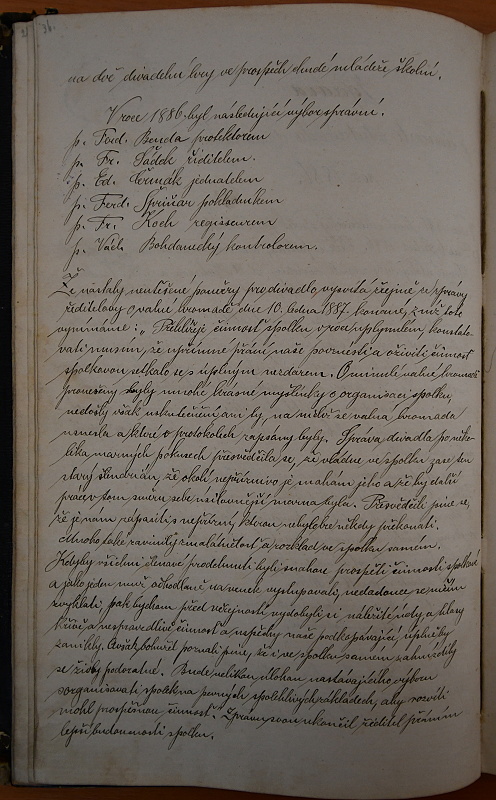 36.
na dvě divadelní hry ve prospěch chudé mládeže školní.
V roce 1886 byl následující výbor správní.
p. Ferd. Benda protektorem
p. Fr. Sádek ředitelem.
p. Ed. Čermák jednatelem
p. Ferd. pokladníkem
p. Fr. Koch regisseurem
p. Václ. Bohdanecký kontrolorem.
Že nastaly neutěšené poměry pro divadlo, vysvítá zřejmě ze zprávy
ředitelovy o valné hromadě dne 10. ledna 1887 konané, z níž toto
vyjímáme: „ činnost spolku v roce uplynulém, konstato-
vati musím, že upřímné přání naše povznésti a oživiti činnost
spolkovou setkalo se s úplným nezdarem. O minulé valné hromadě
proneseny byly mnohé krásné myšlénky o organisaci spolku,
nedošly však uskutečnění ani ty, na nichž se valná hromada
usnesla a které v protokolech zapsány byly. Správa divadla po něko-
lika marných pokusech přesvědčila se, že vládne ve spolku zase ten
starý šlendrián, že okolí nepříznivo je snahám jeho a že by další
práce v tom směru sebe usilovnější marna byla. Přesvědčili jsme se,
že je nám zápasiti s nepřízní, kterou nebylo lze někdy překonati.
Mnoho také zavinily malátnost a rozklad ve spolku samém.
Kdyby všichni členové prodchnuti byli snahou prospěti činnosti spolkové
a jako jeden muž odhodlaně na venek vystupovali, nedostane se
pak bychom před veřejností vydobyli si náležité úcty a hlasy
a nespravedlivé činnost a úspěchy naše podkopávající úplně by
zanikly. Avšak bohužel poznali jsme, že i ve spolku samém zahnízdily
se živly podvratné. Bude velikou úlohou nastávajícího výboru
zorganisovati spolek na pevných spolehlivých základech, aby rozvíti
mohl prospěšnou činnost." Zprávu svou ukončil ředitel přáním
lepší budoucnosti spolku.